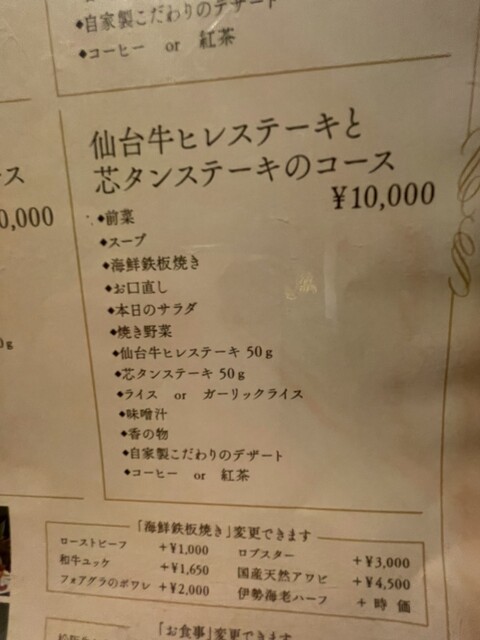 ◆自家製こだわりのデザート
◆コーヒー or 紅茶
仙台牛ヒレステーキと
芯タンステーキのコース
¥10,000
◆前菜
◆スープ
◆海鮮鉄板焼き
◆お口直し
◆本日のサラダ
◆焼き野菜
◆仙台牛ヒレステーキ 50g
◆芯タンステーキ 50g
◆ライス or ガーリックライス
◆味噌汁
◆香の物
◆自家製こだわりのデザート
◆コーヒー or 紅茶
ース
0,000
0g
「海鮮鉄板焼き」変更できます
ローストビーフ +¥1,000
和牛ユッケ +¥1,650
フォアグラのポワレ +¥2,000
ロブスター +¥3,000
国産天然アワビ +¥4,500
伊勢海老ハーフ + 時 価
「お食事」変更できます